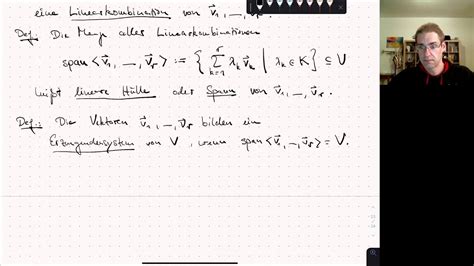 eine Linearkombination von v⃗₁, …, v⃗ᵣ.
Def. Die Menge aller Linearkombinationen
span <v⃗₁, …, v⃗ᵣ> := { ∑ᵣₖ₌₁ λₖ v⃗ₖ | λₖ ∈ K } ⊆ V
heißt lineare Hülle oder Spann von v⃗₁, …, v⃗ᵣ.
Def.: Die Vektoren v⃗₁, …, v⃗ᵣ bilden ein
Erzeugendensystem von V, wenn span <v⃗₁, …, v⃗ᵣ> = V.